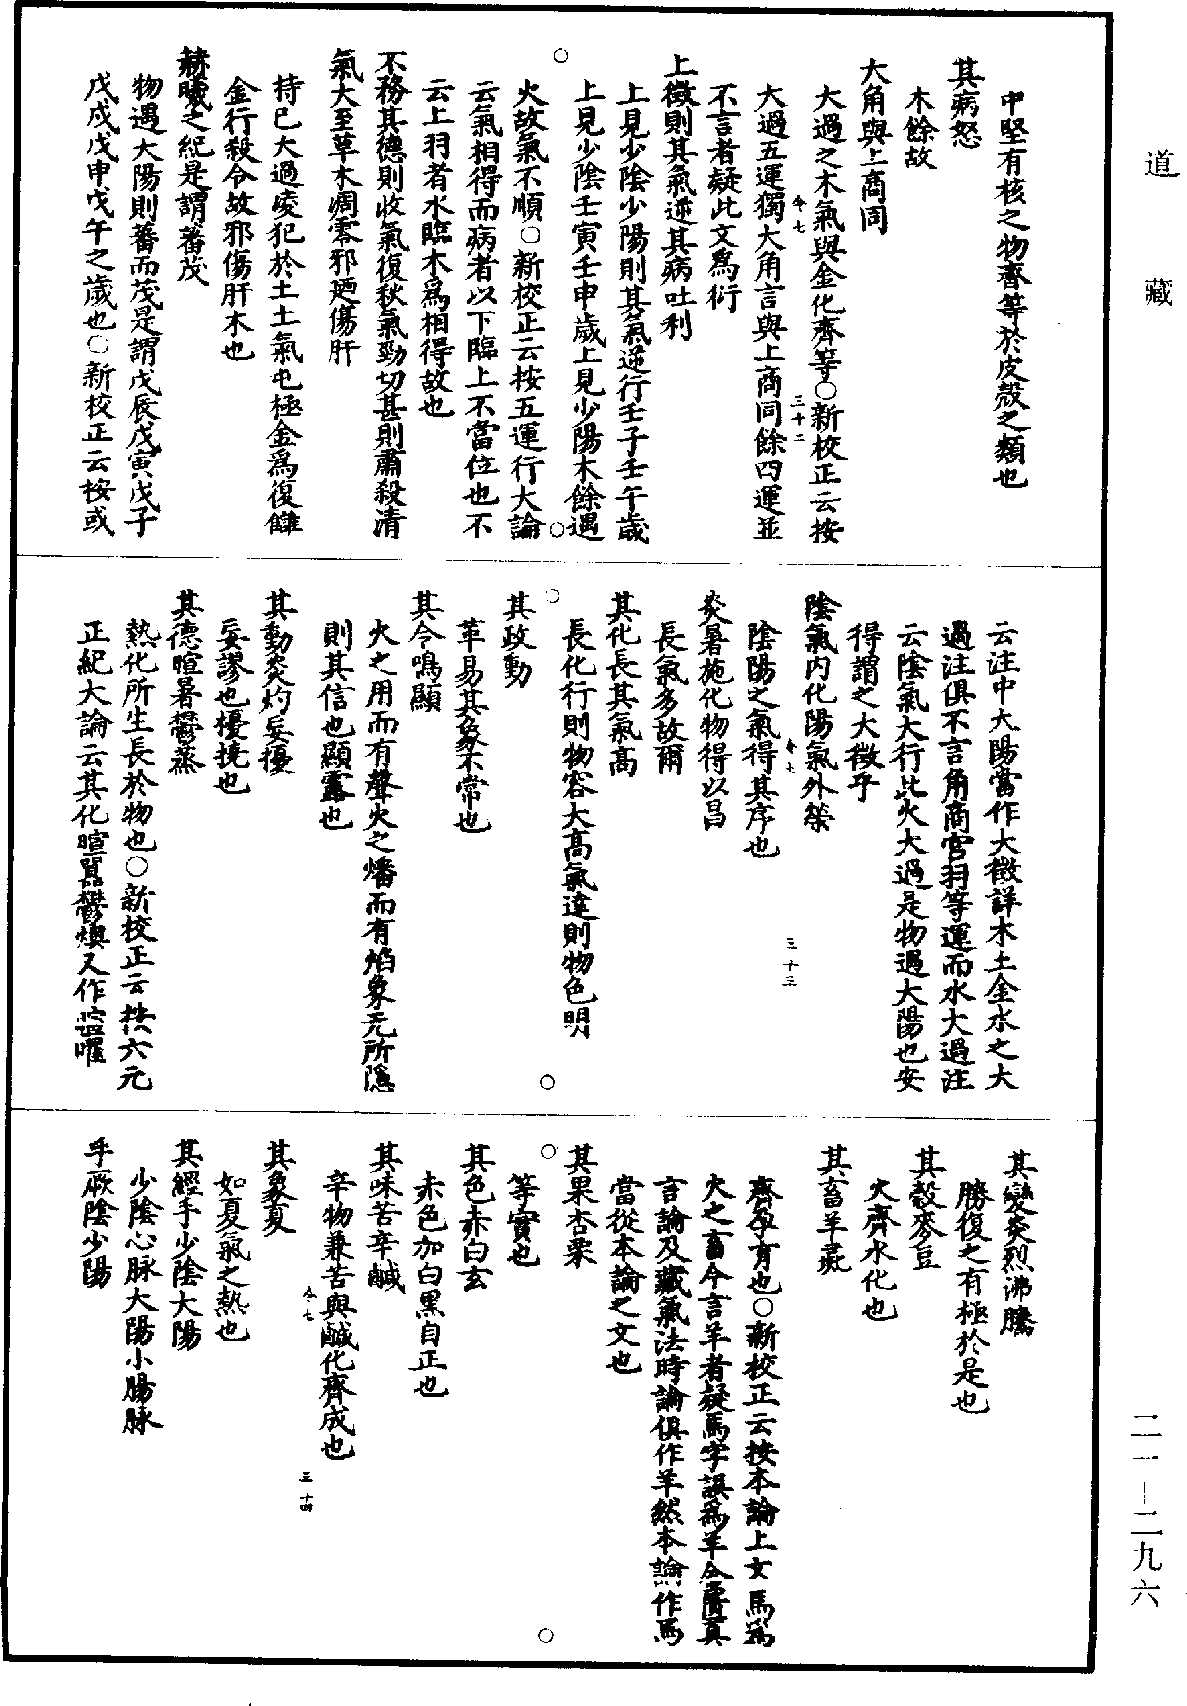 道藏
中堅有核之物齊等於皮殼之類也
其病怒
木餘故
大角與上商同
大過之木氣與金化齊等○新校正云按
大過五運獨大角言與上商同餘四運並
不言者疑此文爲衍
上徵則其氣逆其病吐利
上見少陰少陽則其氣逆行壬子壬午歲
上見少陰壬寅壬申歲上見少陽木餘遇
火故氣不順○新校正云按五運行大論
云氣相得而病者以下臨上不當位也不
云上羽者水臨木爲相得故也
不務其德則收氣復秋氣勁切甚則肅殺清
氣大至草木凋零邪廼傷肝
恃已大過凌犯於土土氣屯極金爲復讎
金行殺令故邪傷肝木也
赫曦之紀是謂蕃茂
物遇大陽則蕃而茂是謂戊辰戊寅戊子
戊戌戊申戊午之歲也○新校正云按或
云注中大陽當作大徵詳木土金水之大
過注俱不言角商宮羽等運而水大過注
云陰氣大行此火大過是物遇大陽也安
得謂之大徵乎
陰氣內化陽氣外榮
陰陽之氣得其序也
炎暑施化物得以昌
長氣多故爾
其化長其氣高
長化行則物容大高氣達則物色明
其政動
革易其象不常也
其令鳴顯
火之用而有聲火之燔而有焰象无所隱
則其信也顯露也
其動炎灼妄擾
妄謬也擾撓也
其德暄暑鬱蒸
熱化所生長於物也○新校正云按六元
正紀大論云其化暄囂鬱燠又作暄曜
其變炎烈沸騰
勝復之有極於是也
其穀麥豆
火齊水化也
其畜羊彘
齊孕育也○新校正云按本論上文馬爲
火之畜今言羊者疑馬字誤爲羊金匱真
言論及藏氣法時論俱作羊然本論作馬
當從本論之文也
其果杏栗
等實也
其色赤白玄
赤色加白黑自正也
其味苦辛鹹
辛物兼苦與鹹化齊成也
其象夏
如夏氣之熱也
其經手少陰大陽
少陰心脉大陽小腸脉
手厥陰少陽
令七 三十二
令七 三十三
令七 三十四
二一—二九六